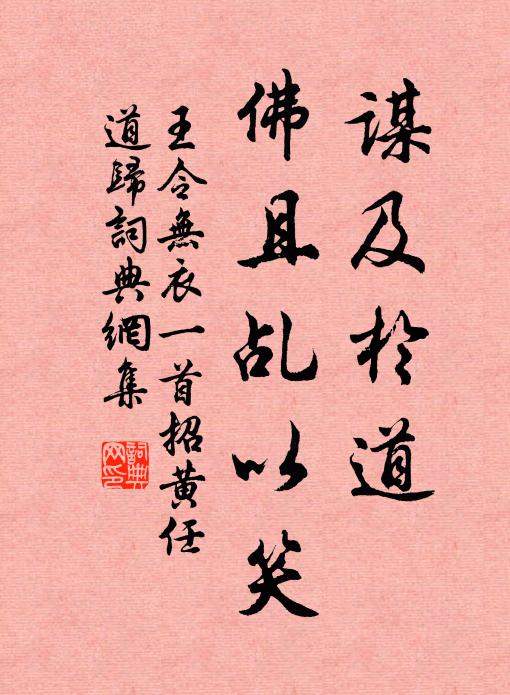 謀及於道
佛且乩以笑
王令無衣一首招黃任
道歸詞典網集
詞典
网印